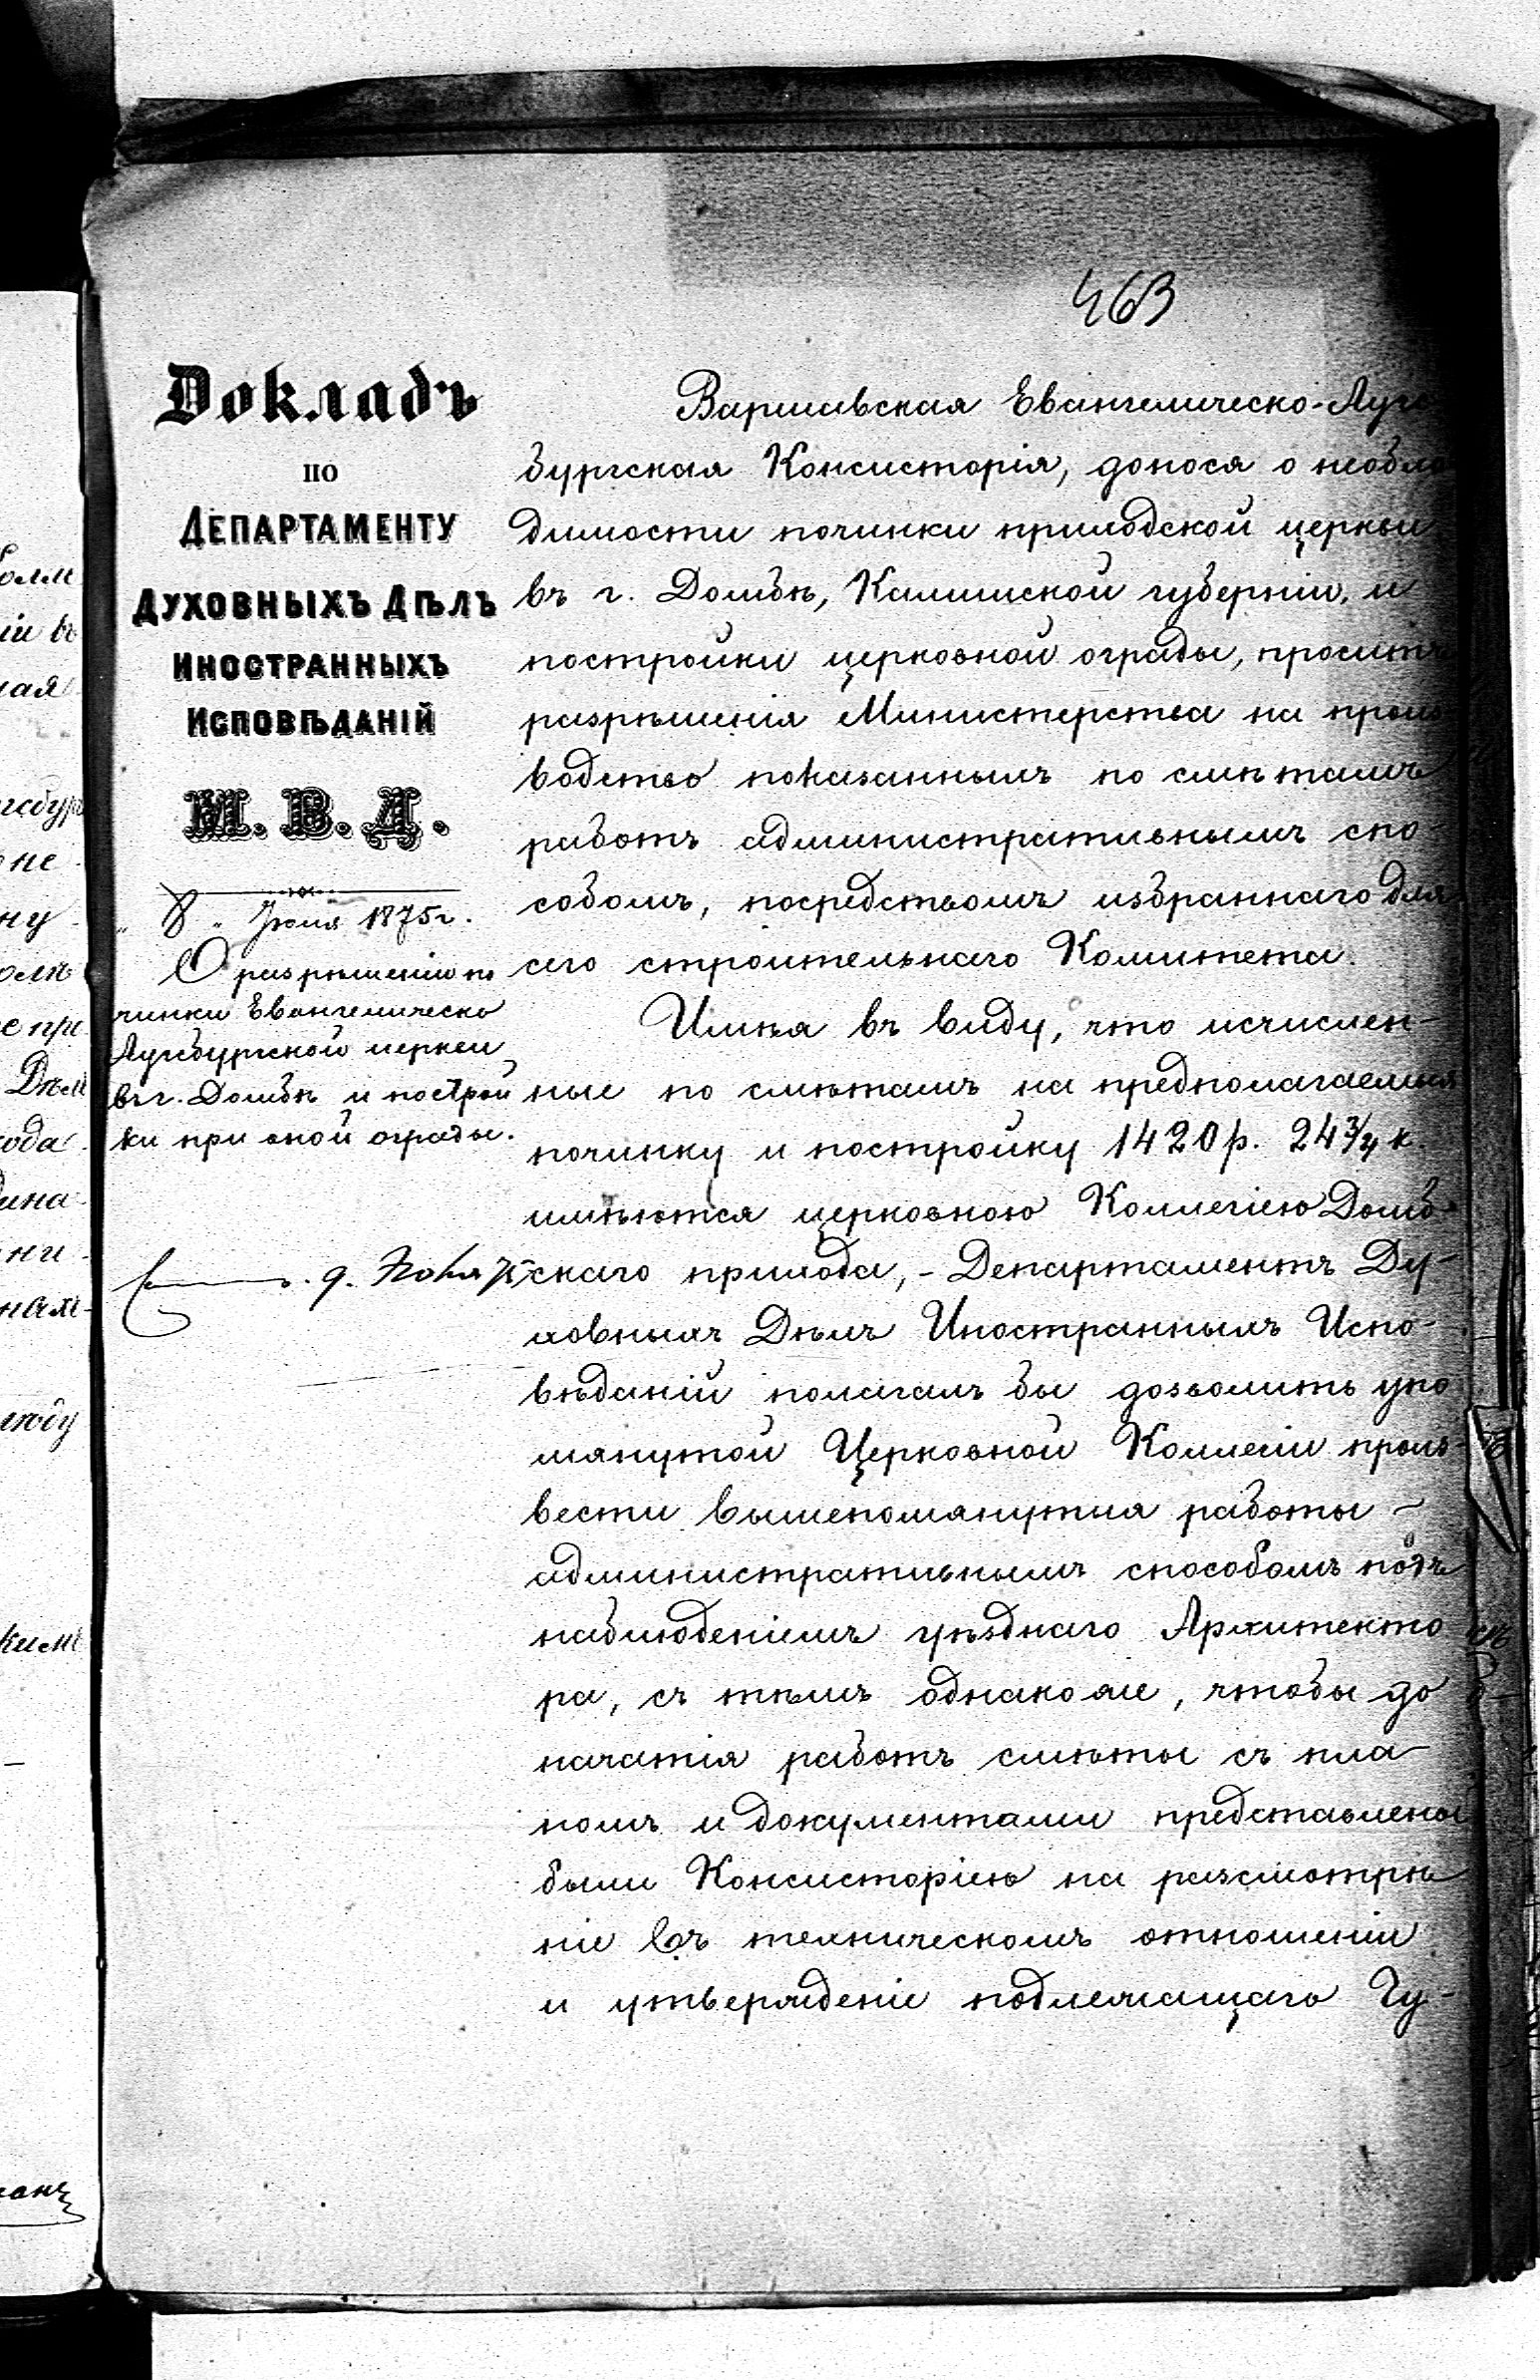 463
Докладъ
по
Департаменту
Духовныхъ Дѣлъ
Иностранныхъ
Исповѣданій
М. В. Д.
„ 8 „ Іюля 1875 г.
О разрѣшеніи по
чинки Евангелическо
Аугсбургской церкви
въ г. Домбѣ и построй
ки при оной ограды.
Варшавская Евангелическо-Аугс
бургская Консисторія, донося о необхо
димости починки приходской церкви
въ г. Домбѣ, Калишской губерніи, и
постройки церковной ограды, проситъ
разрѣшенія Министерства на произ
водство показанныхъ по смѣтамъ
работъ административнымъ спо-
собомъ, посредствомъ избраннаго для
сего строительнаго Комитета.
Имѣя въ виду, что исчислен-
ные по смѣтамъ на предполагаемыя
починку и постройку 1420 р. 24 3/4 к.
имѣются церковною Коллегіею Домб-
скаго прихода, - Департаментъ Ду-
ховныхъ Дѣлъ Иностранныхъ Испо-
вѣданій полагалъ бы дозволить упо
мянутой Церковной Коллегіи произ-
вести вышепомянутыя работы -
административнымъ способомъ подъ
наблюденіемъ уѣзднаго Архитекто
ра, съ тѣмъ однако же, чтобы до
начатія работъ смѣты съ пла-
номъ и документами представлены
были Консисторіею на разсмотрѣ
ніе въ техническомъ отношеніи
и утвержденіе подлежащаго Гу-